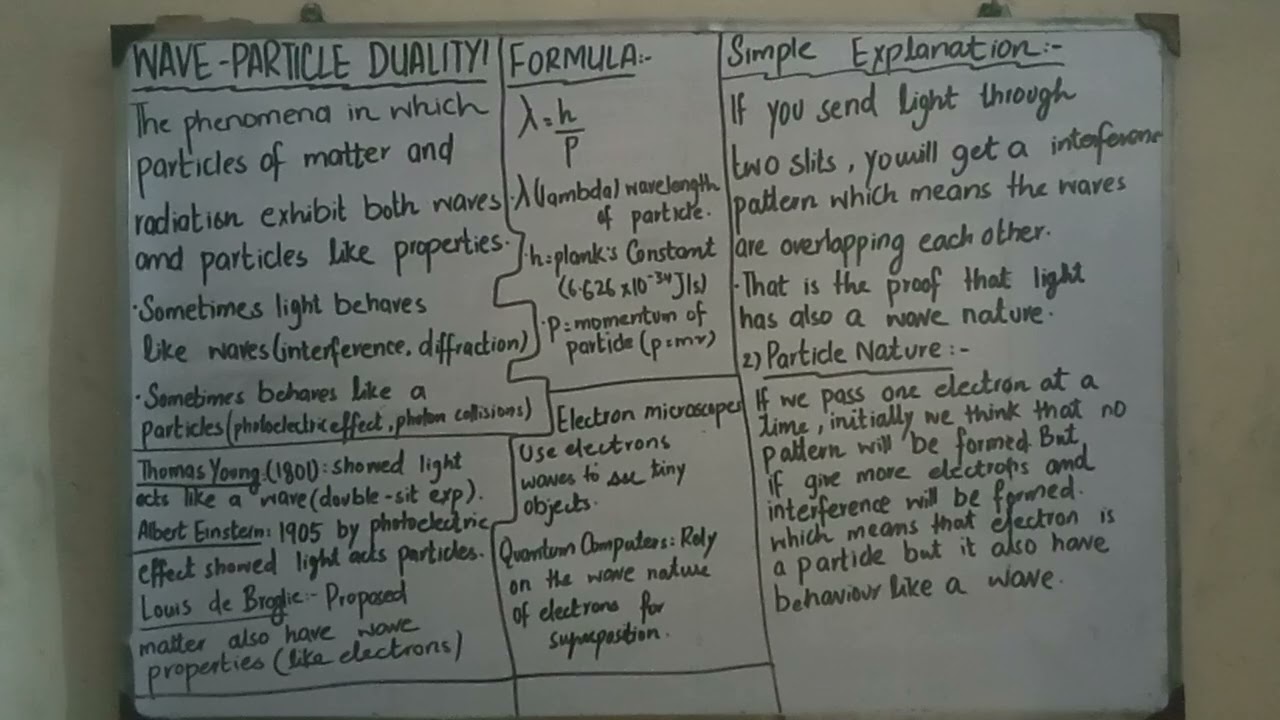 WAVE-PARTICLE DUALITY!
The phenomena in which
particles of matter and
radiation exhibit both waves
and particles like properties.
·Sometimes light behaves
like waves(interference, diffraction)
·Sometimes behaves like a
particles(photoelectric effect, photon collisions)
Thomas Young:(1801): showed light
acts like a wave(double-sit exp).
Albert Einstern: 1905 by photoelectric
effect showed light acts particles.
Louis de Broglie:- Proposed
matter also have wave
properties (like electrons)
FORMULA:-
λ=h
P
·λ(lambda) wavelength
of particle.
·h=plank's Constant
(6.626×10⁻³⁴J/s)
·P=momentum of
particle (p=mv)
Electron microscopes
Use electrons
waves to see tiny
objects.
Quantum Computers: Rely
on the wave nature
of electrons for
supraposition.
Simple Explanation:-
If you send light through
two slits, you will get a interference
pattern which means the waves
are overlapping each other.
·That is the proof that light
has also a wave nature.
2) Particle Nature:-
If we pass one electron at a
time, initially we think that no
pattern will be formed. But,
if give more electrons and
interference will be formed.
which means that electron is
a particle but it also have
behaviour like a wave.